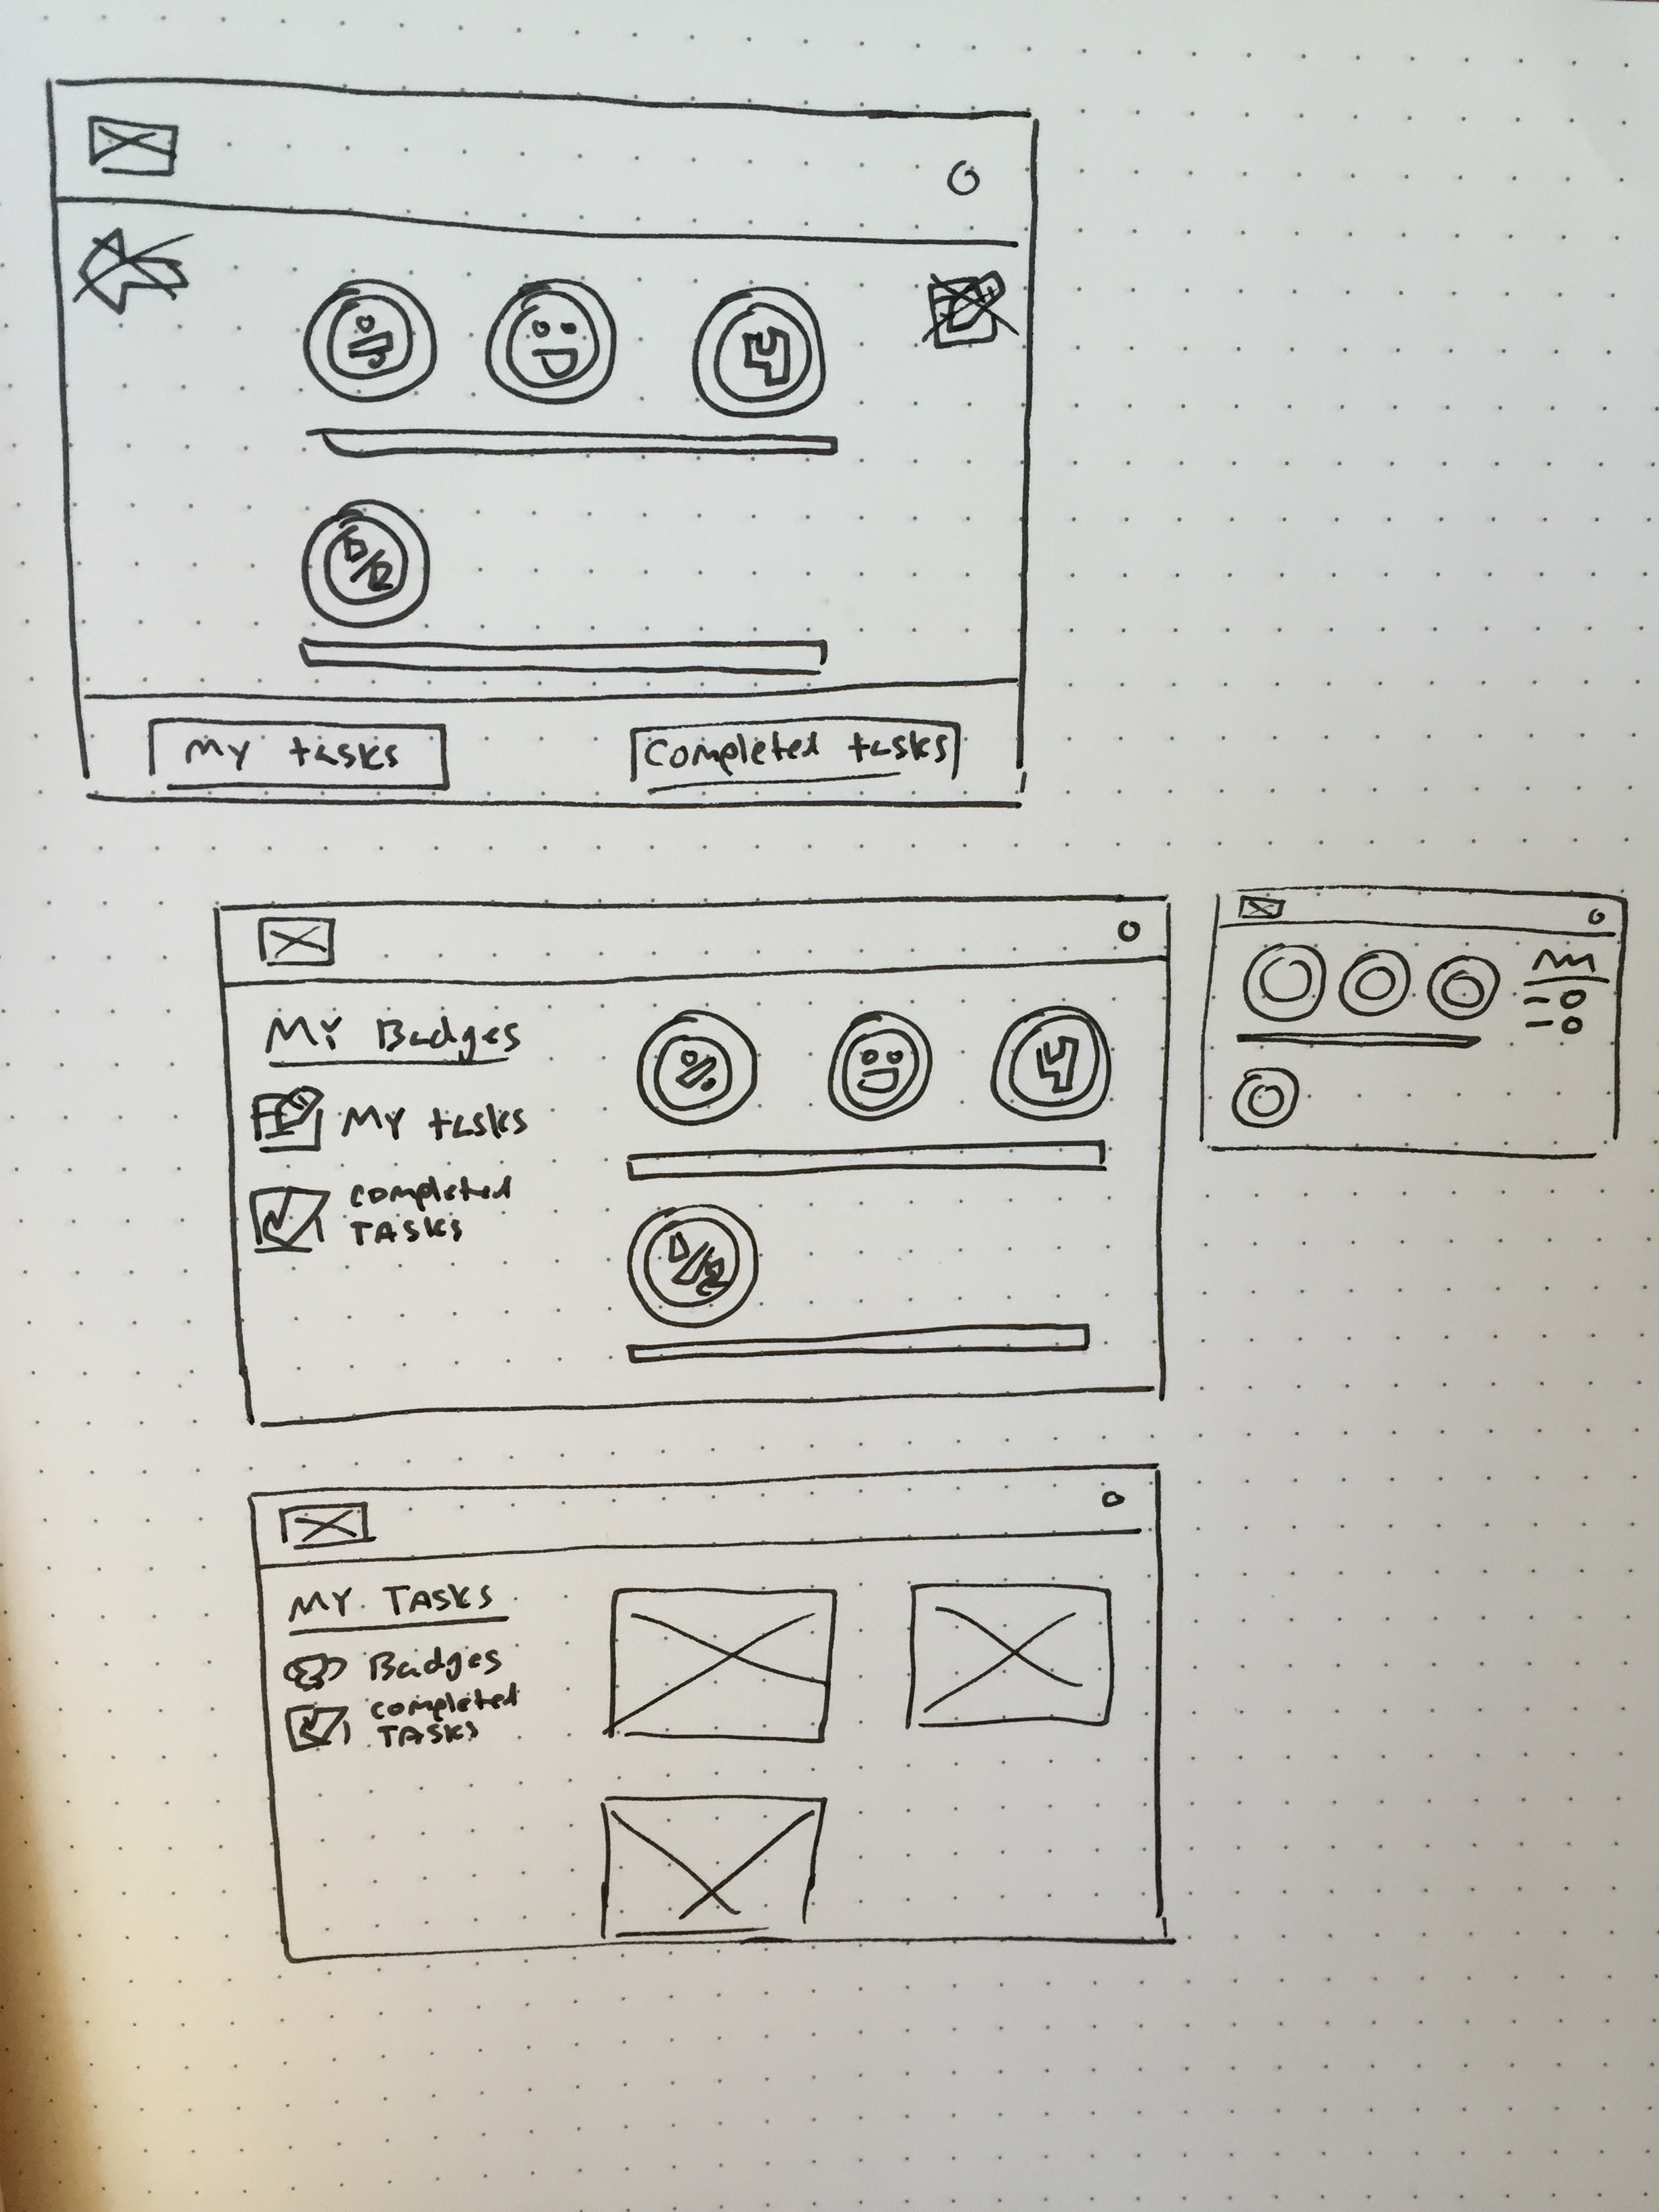 My tasks
Completed tasks
4
My Badges
My tasks
completed
TASKS
4
MY TASKS
Badges
completed
TASKS